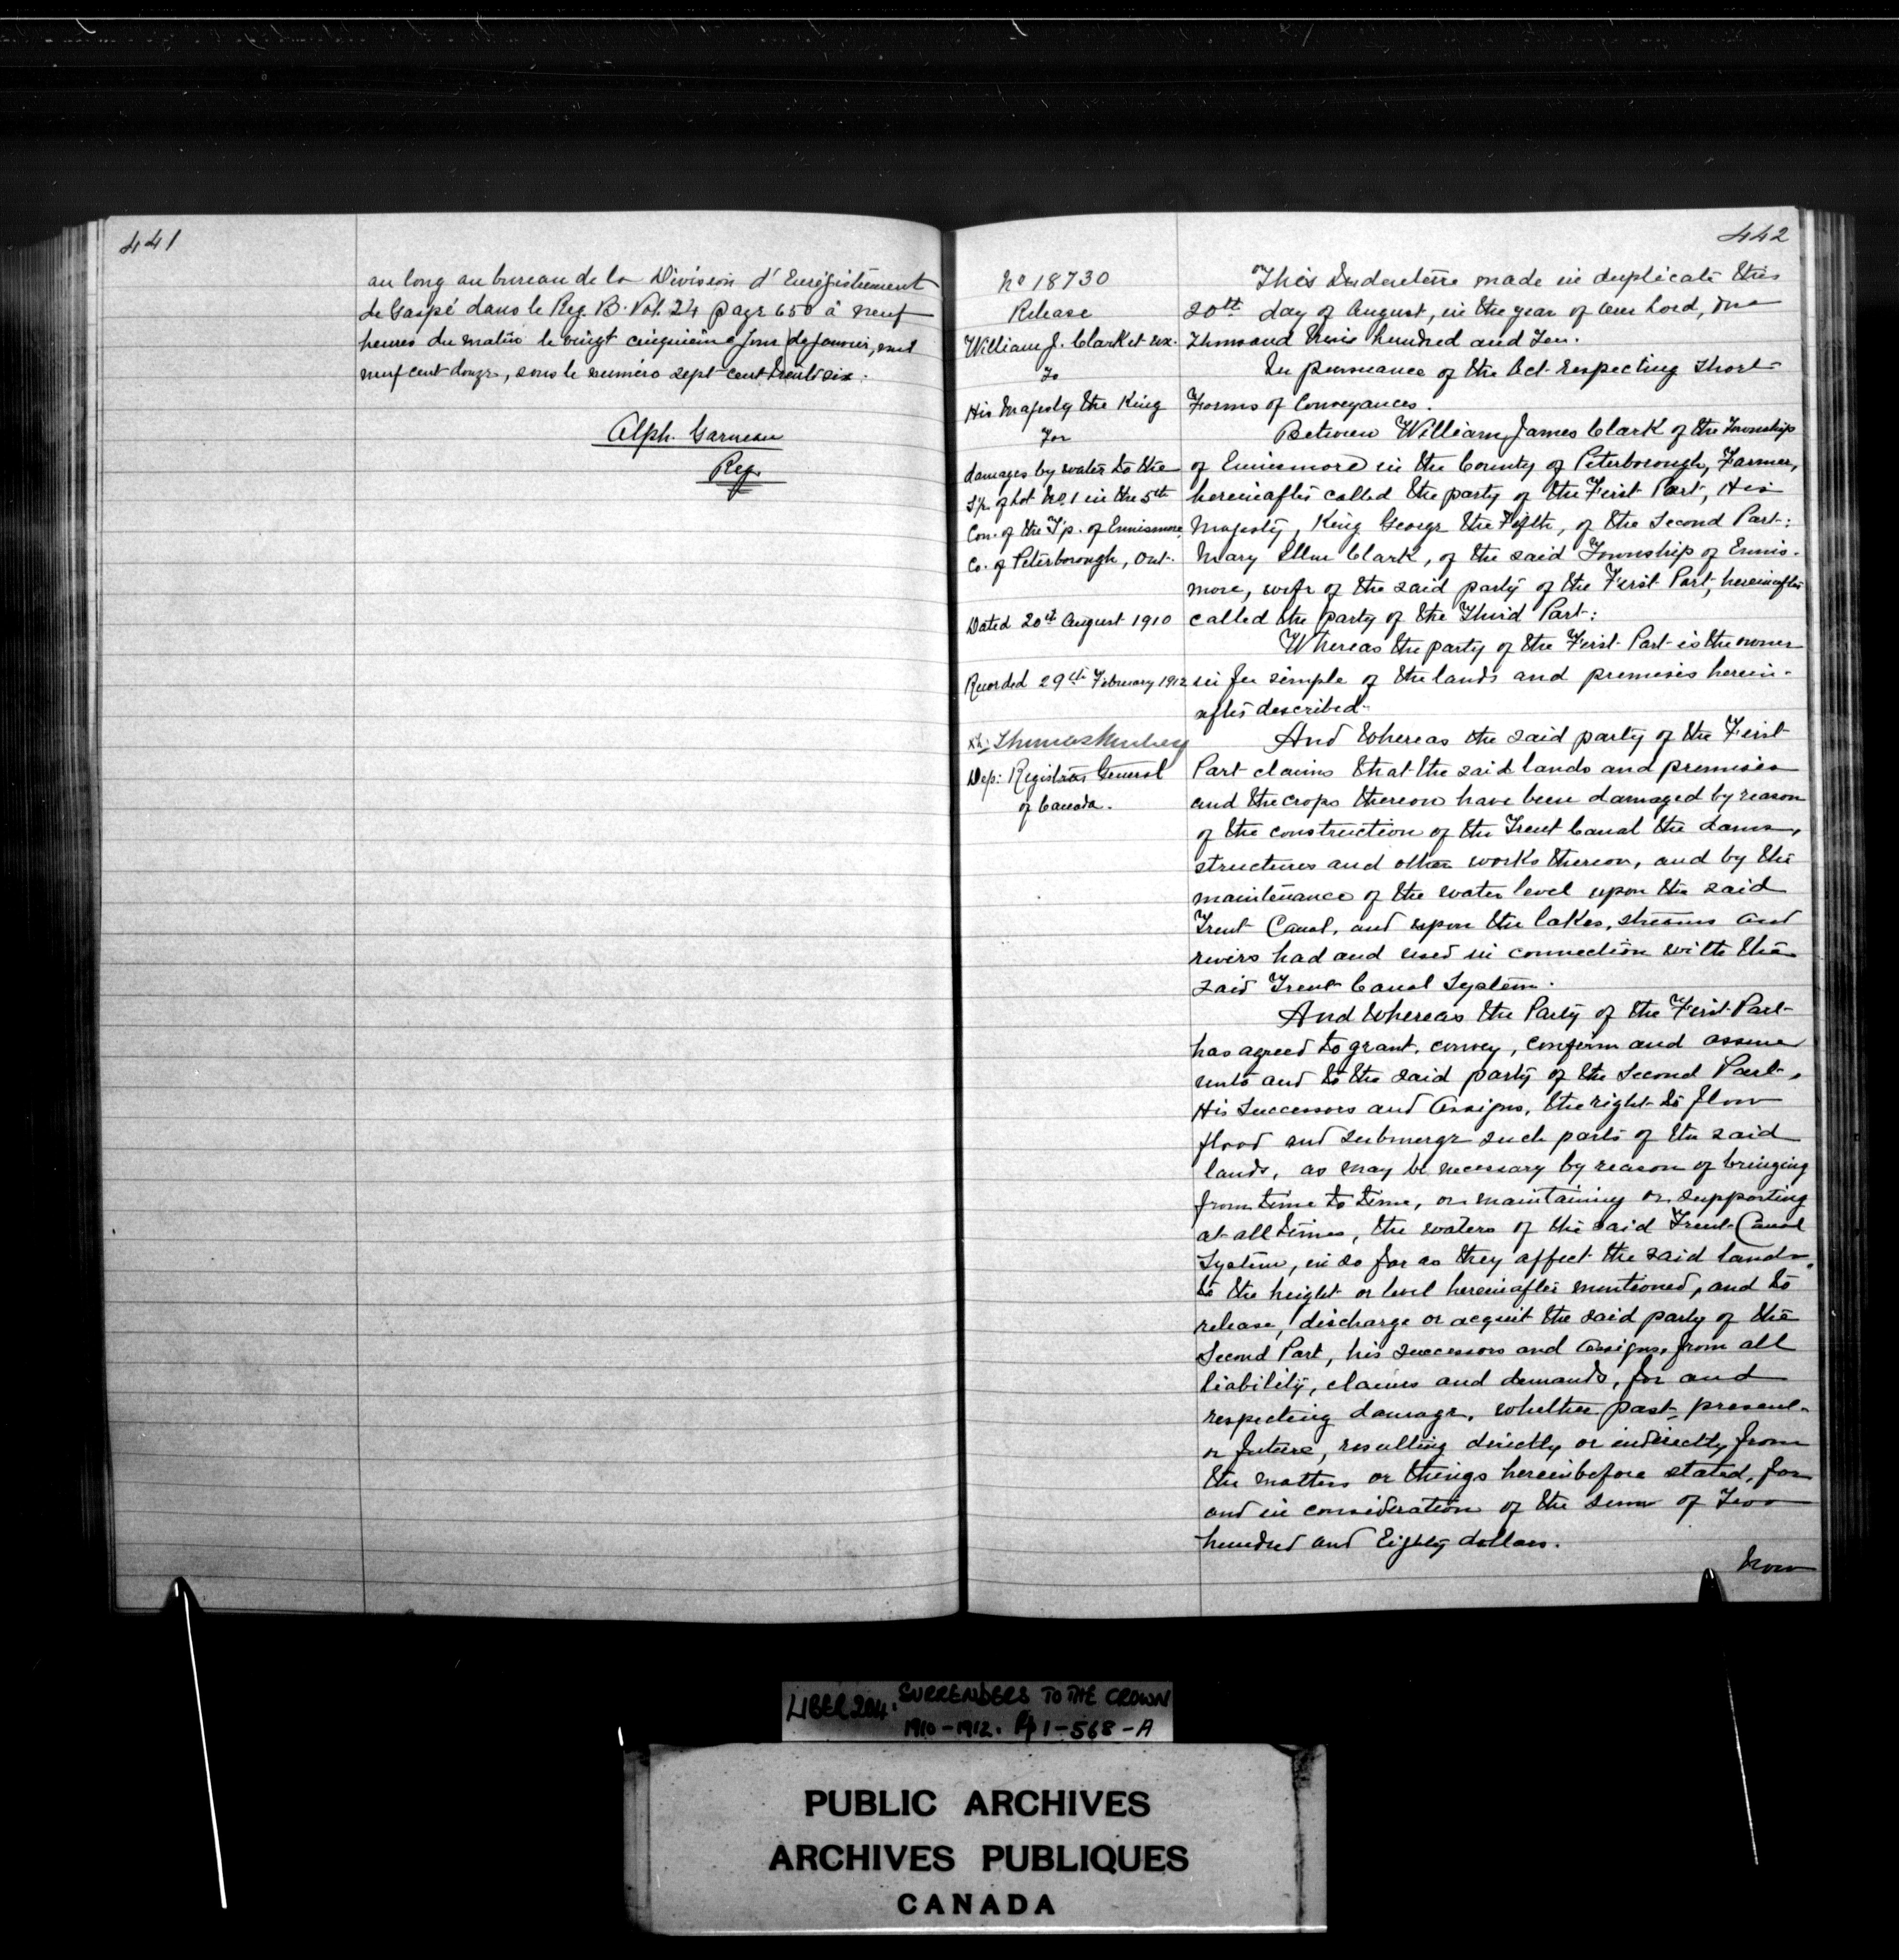 441
au long au bureau de la Division d'Enregistrement
de Gaspé dans le Reg. B. Vol. 24 page 650 à neuf
heures du matin le vingt cinquième jour de Janvier, mil
neuf cent douze, sous le numéro sept cent trente six.
Alph. Garneau
Reg.
442
No 18730
Release
William J. Clark et ux.
To
His Majesty the King
For
damages by water to the
of Lot No. 1 in the 5th
Con. of the Tp. of Ennismore,
Co. of Peterborough, Ont.
Dated 20th August 1910
Recorded 29th February 1912
Dep: Registrar General
of Canada.
This Indenture made in duplicate this
20th day of August, in the year of Our Lord, One
Thousand Nine hundred and Ten.
In pursuance of the Act respecting Short
Forms of Conveyances.
Between William James Clark of the Township
of Ennismore in the County of Peterborough, Farmer,
hereinafter called the party of the First Part, His
Majesty, King George the Fifth, of the Second Part:
Mary Ellen Clark, of the said Township of Ennis-
more, wife of the said party of the First Part, hereinafter
called the party of the Third Part:
Whereas the party of the First Part is the owner
in fee simple of the lands and premises herein-
after described.
And Whereas the said party of the First
Part claims that the said lands and premises
and the crops thereon have been damaged by reason
of the construction of the Trent Canal the dams,
structures and other works thereon, and by the
maintenance of the water level upon the said
Trent Canal, and upon the lakes, streams and
rivers had and used in connection with the
said Trent Canal System.
And Whereas the Party of the First Part
has agreed to grant, convey, confirm and assure
unto and to the said party of the Second Part,
His Successors and Assigns, the right to flow
flood and submerge such parts of the said
lands, as may be necessary by reason of bringing
from time to time, or maintaining or supporting
at all times, the waters of the said Trent Canal
System, in so far as they affect the said lands,
to the height or level hereinafter mentioned, and to
release, discharge or acquit the said party of the
Second Part, his successors and Assigns, from all
liability, claims and demands, for and
respecting damage, whether past, present
or future, resulting directly or indirectly from
the matters or things hereinbefore stated, for
and in consideration of the sum of Two
hundred and Eighty dollars.
Now
LIBER 204. SURRENDERS TO THE CROWN
1910-1912. Pp 1-568-A
PUBLIC ARCHIVES
ARCHIVES PUBLIQUES
CANADA